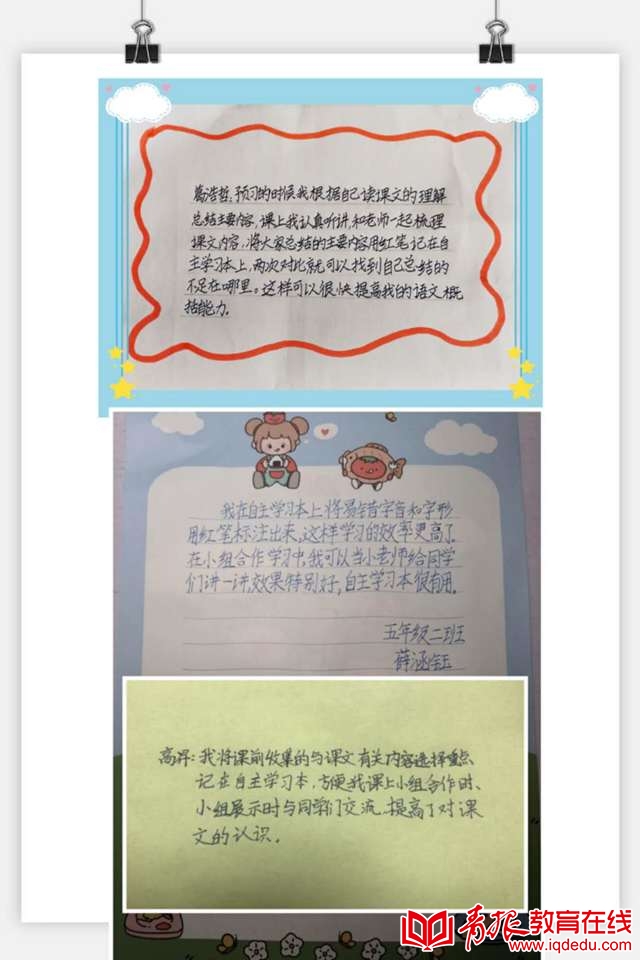 葛浩哲:预习的时候我根据自己读课文的理解
总结主要内容,课上我认真听讲,和老师一起梳理
课文内容,将大家总结的主要内容用红笔记在自
主学习本上,两次对比就可以找到自己总结的
不足在哪里。这样可以很快提高我的语文概
括能力。
我在自主学习本上将易错字音和字形
用红笔标注出来,这样学习的效率更高了。
在小组合作学习中,我可以当小老师给同学
们讲一讲,效果特别好,自主学习本很有用。
五年级二班
薛涵钰
高昇:我将课前收集的与课文有关内容选择重点
记在自主学习本,方便我课上小组合作时、
小组展示时与同学们交流,提高了对课
文的认识。
青报教育在线
www.iqdedu.com